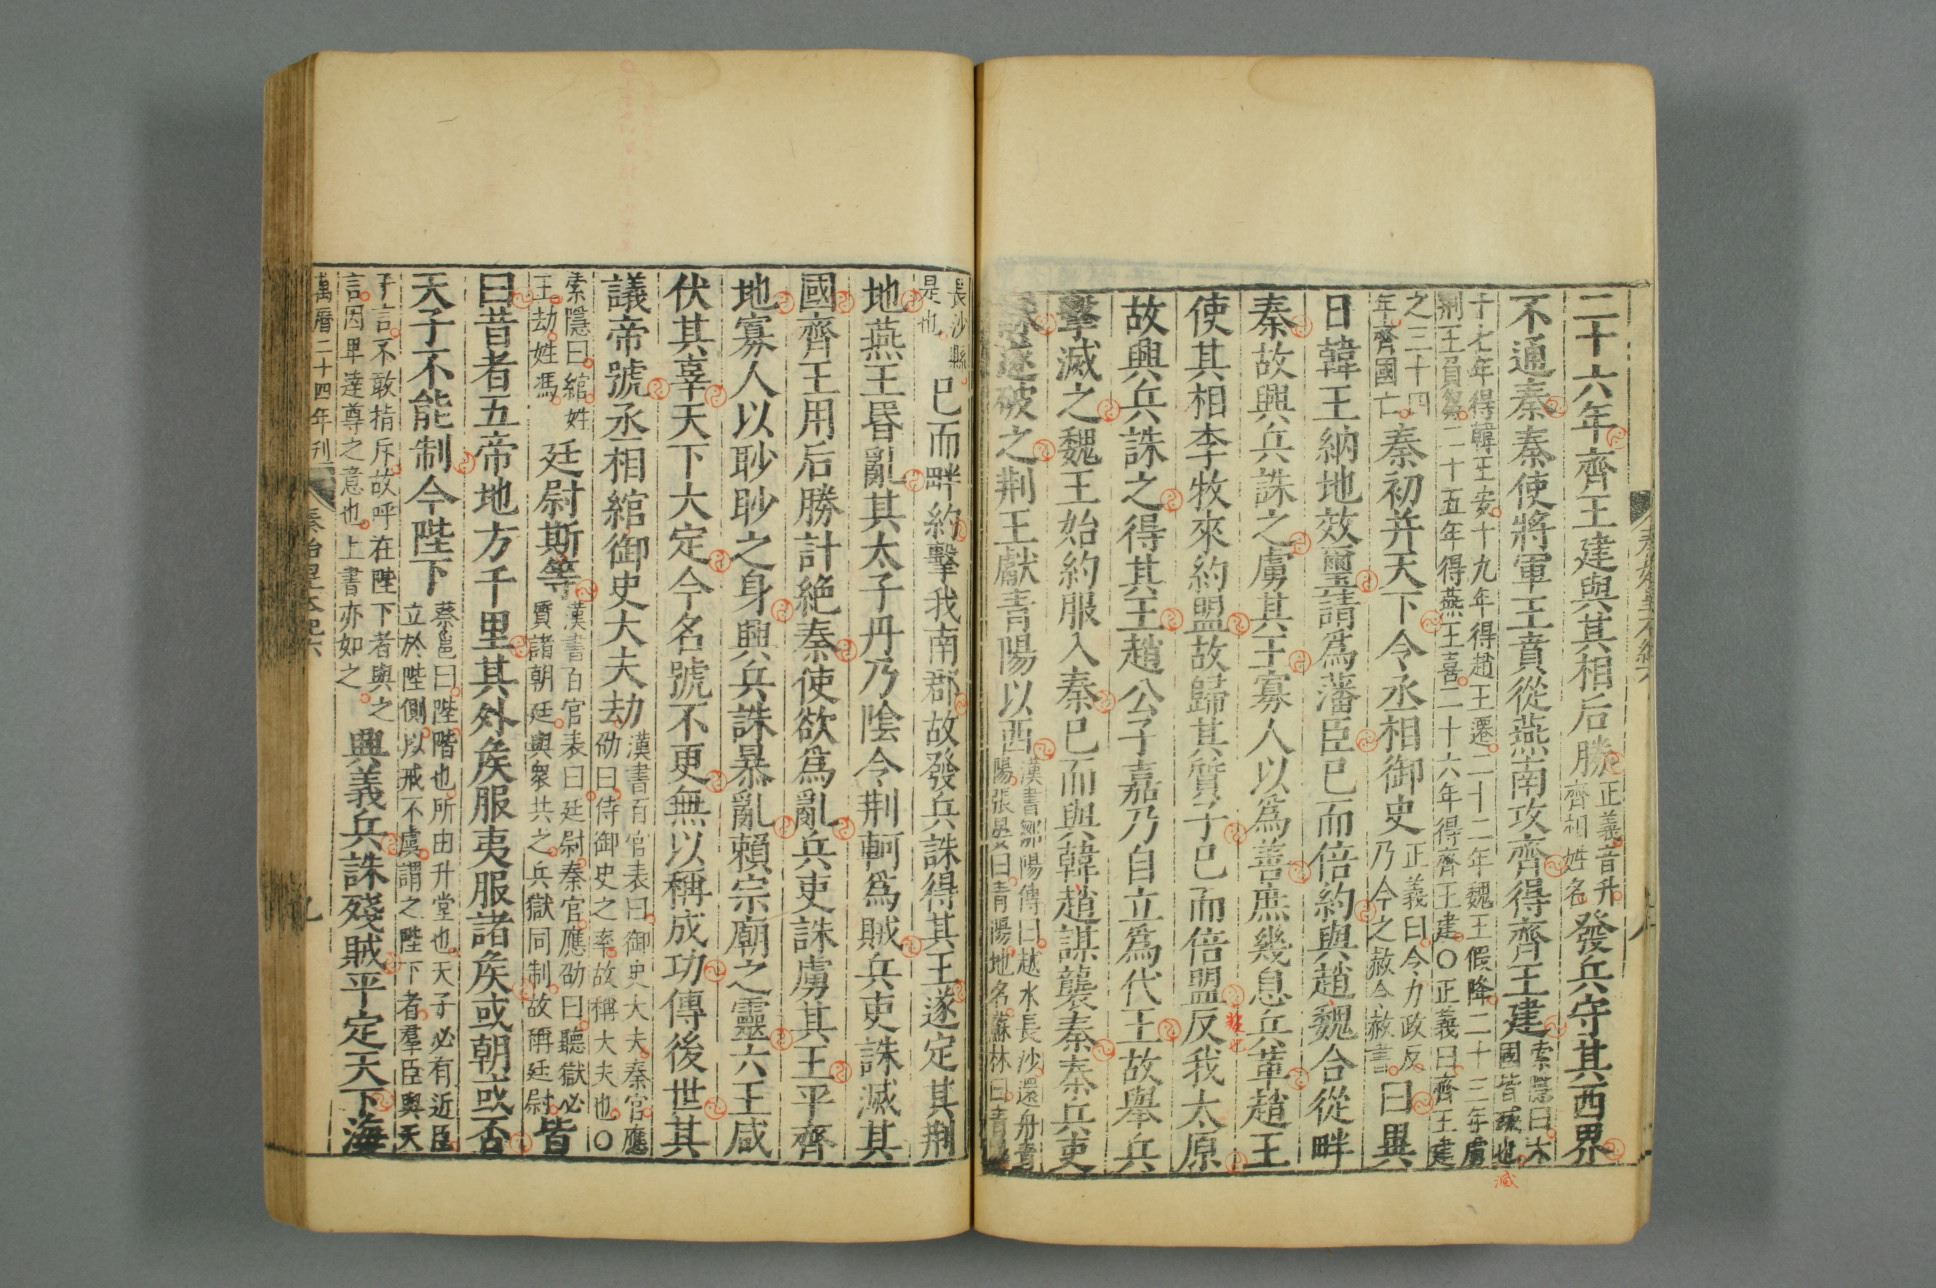 秦始皇本紀六
二十六年齊王建與其相后勝正義音升齊相姓名發兵守其西界
不通秦秦使將軍王賁從燕南攻齊得齊王建索隱曰六國皆滅也
十七年得韓王安十九年得趙王遷二十二年魏王假降二十三年虜
荆王負芻二十五年得燕王喜二十六年得齊王建○正義曰齊王建
之三十四年齊國亡秦初并天下令丞相御史正義曰令力政反乃今之赦令赦書曰異
日韓王納地效璽請爲藩臣已而倍約與趙魏合從畔
秦故興兵誅之虜其王寡人以爲善庶幾息兵革趙王
使其相李牧來約盟故歸其質子已而倍盟反我太原
故興兵誅之得其王趙公子嘉乃自立爲代王故舉兵
擊滅之魏王始約服入秦已而與韓趙謀襲秦秦兵吏
誅遂破之荆王獻青陽以西漢書鄒陽傳曰越水長沙還舟青陽張晏曰青陽地名蘇林曰青陽
長沙縣是也已而畔約擊我南郡故發兵誅得其王遂定其荆
地燕王昬亂其太子丹乃陰令荆軻爲賊兵吏誅滅其
國齊王用后勝計絶秦使欲爲亂兵吏誅虜其王平齊
地寡人以眇眇之身興兵誅暴亂賴宗廟之靈六王咸
伏其辜天下大定今名號不更無以稱成功傳後世其
議帝號丞相綰御史大夫劫漢書百官表曰御史大夫秦官應劭曰侍御史之率故稱大夫也○
索隱曰綰姓王劫姓馮廷尉斯等漢書百官表曰廷尉秦官應劭曰聽獄必質諸朝廷與衆共之兵獄同制故稱廷尉皆
曰昔者五帝地方千里其外矦服夷服諸矦或朝或否
天子不能制今陛下蔡邕曰陛階也所由升堂也天子必有近臣立於陛側以戒不虞謂之陛下者羣臣與天
子言不敢指斥故呼在陛下者與之言因卑達尊之意也上書亦如之興義兵誅殘賊平定天下海
萬曆二十四年刊
秦始皇本紀六
九